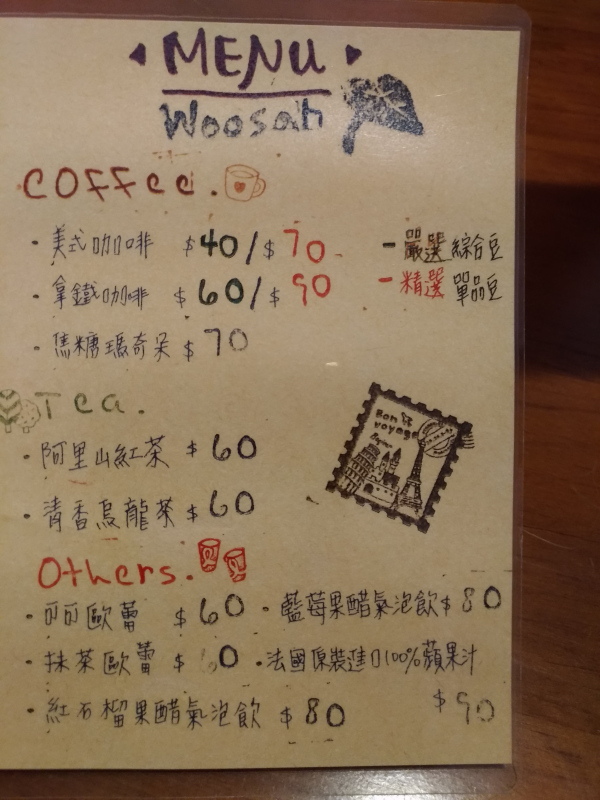 MENU
Woosah
COFFee.
·美式咖啡 $40/$70 -嚴選綜合豆
·拿鐵咖啡 $60/$90 -精選單品豆
·焦糖瑪奇朵 $70
Tea.
·阿里山紅茶 $60
·清香烏龍茶 $60
Bon voyage
Others.
·可可歐蕾 $60 ·藍莓果醋氣泡飲$80
·抹茶歐蕾 $ 0 ·法國原裝進口100%蘋果汁
·紅石榴果醋氣泡飲 $80 $90